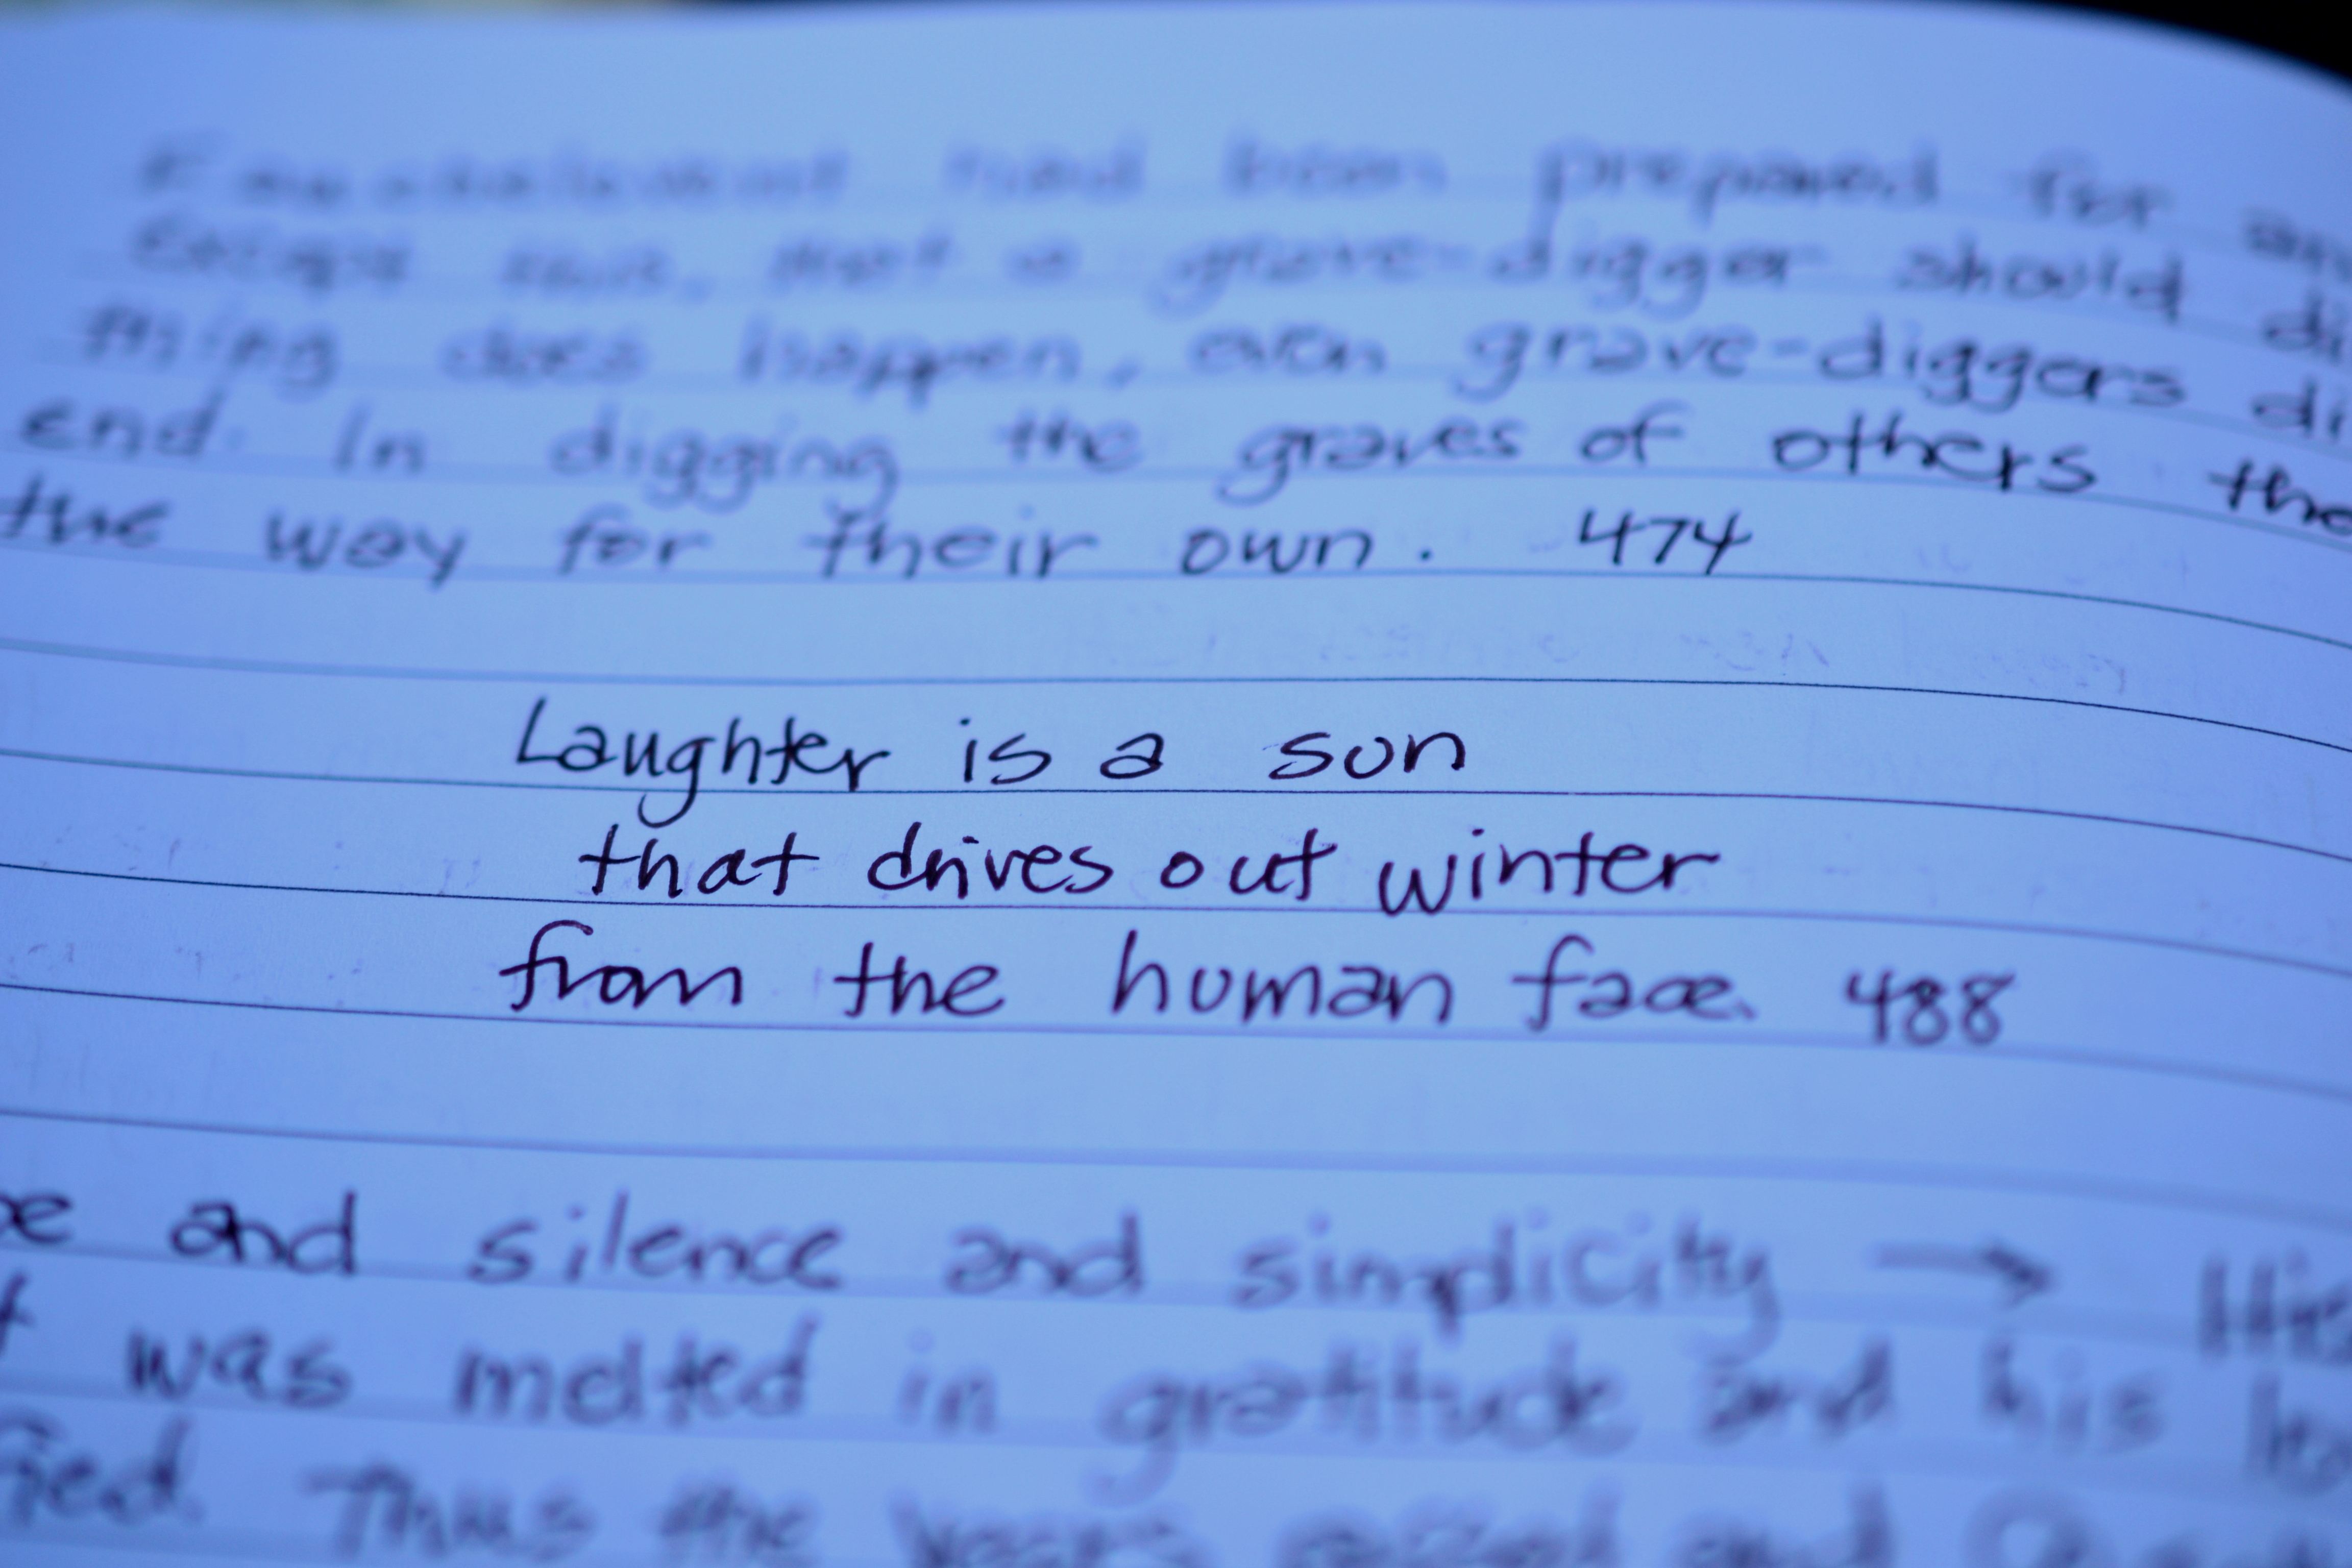 Fauchelevent had been prepared for
except this, that a grave-digger should
thing does happen, even grave-diggers
end. In digging the graves of others
the way for their own. 474
Laughter is a sun
that drives out winter
from the human face. 488
and silence and simplicity → His
was melted in gratitude and his
Thus the years passed and